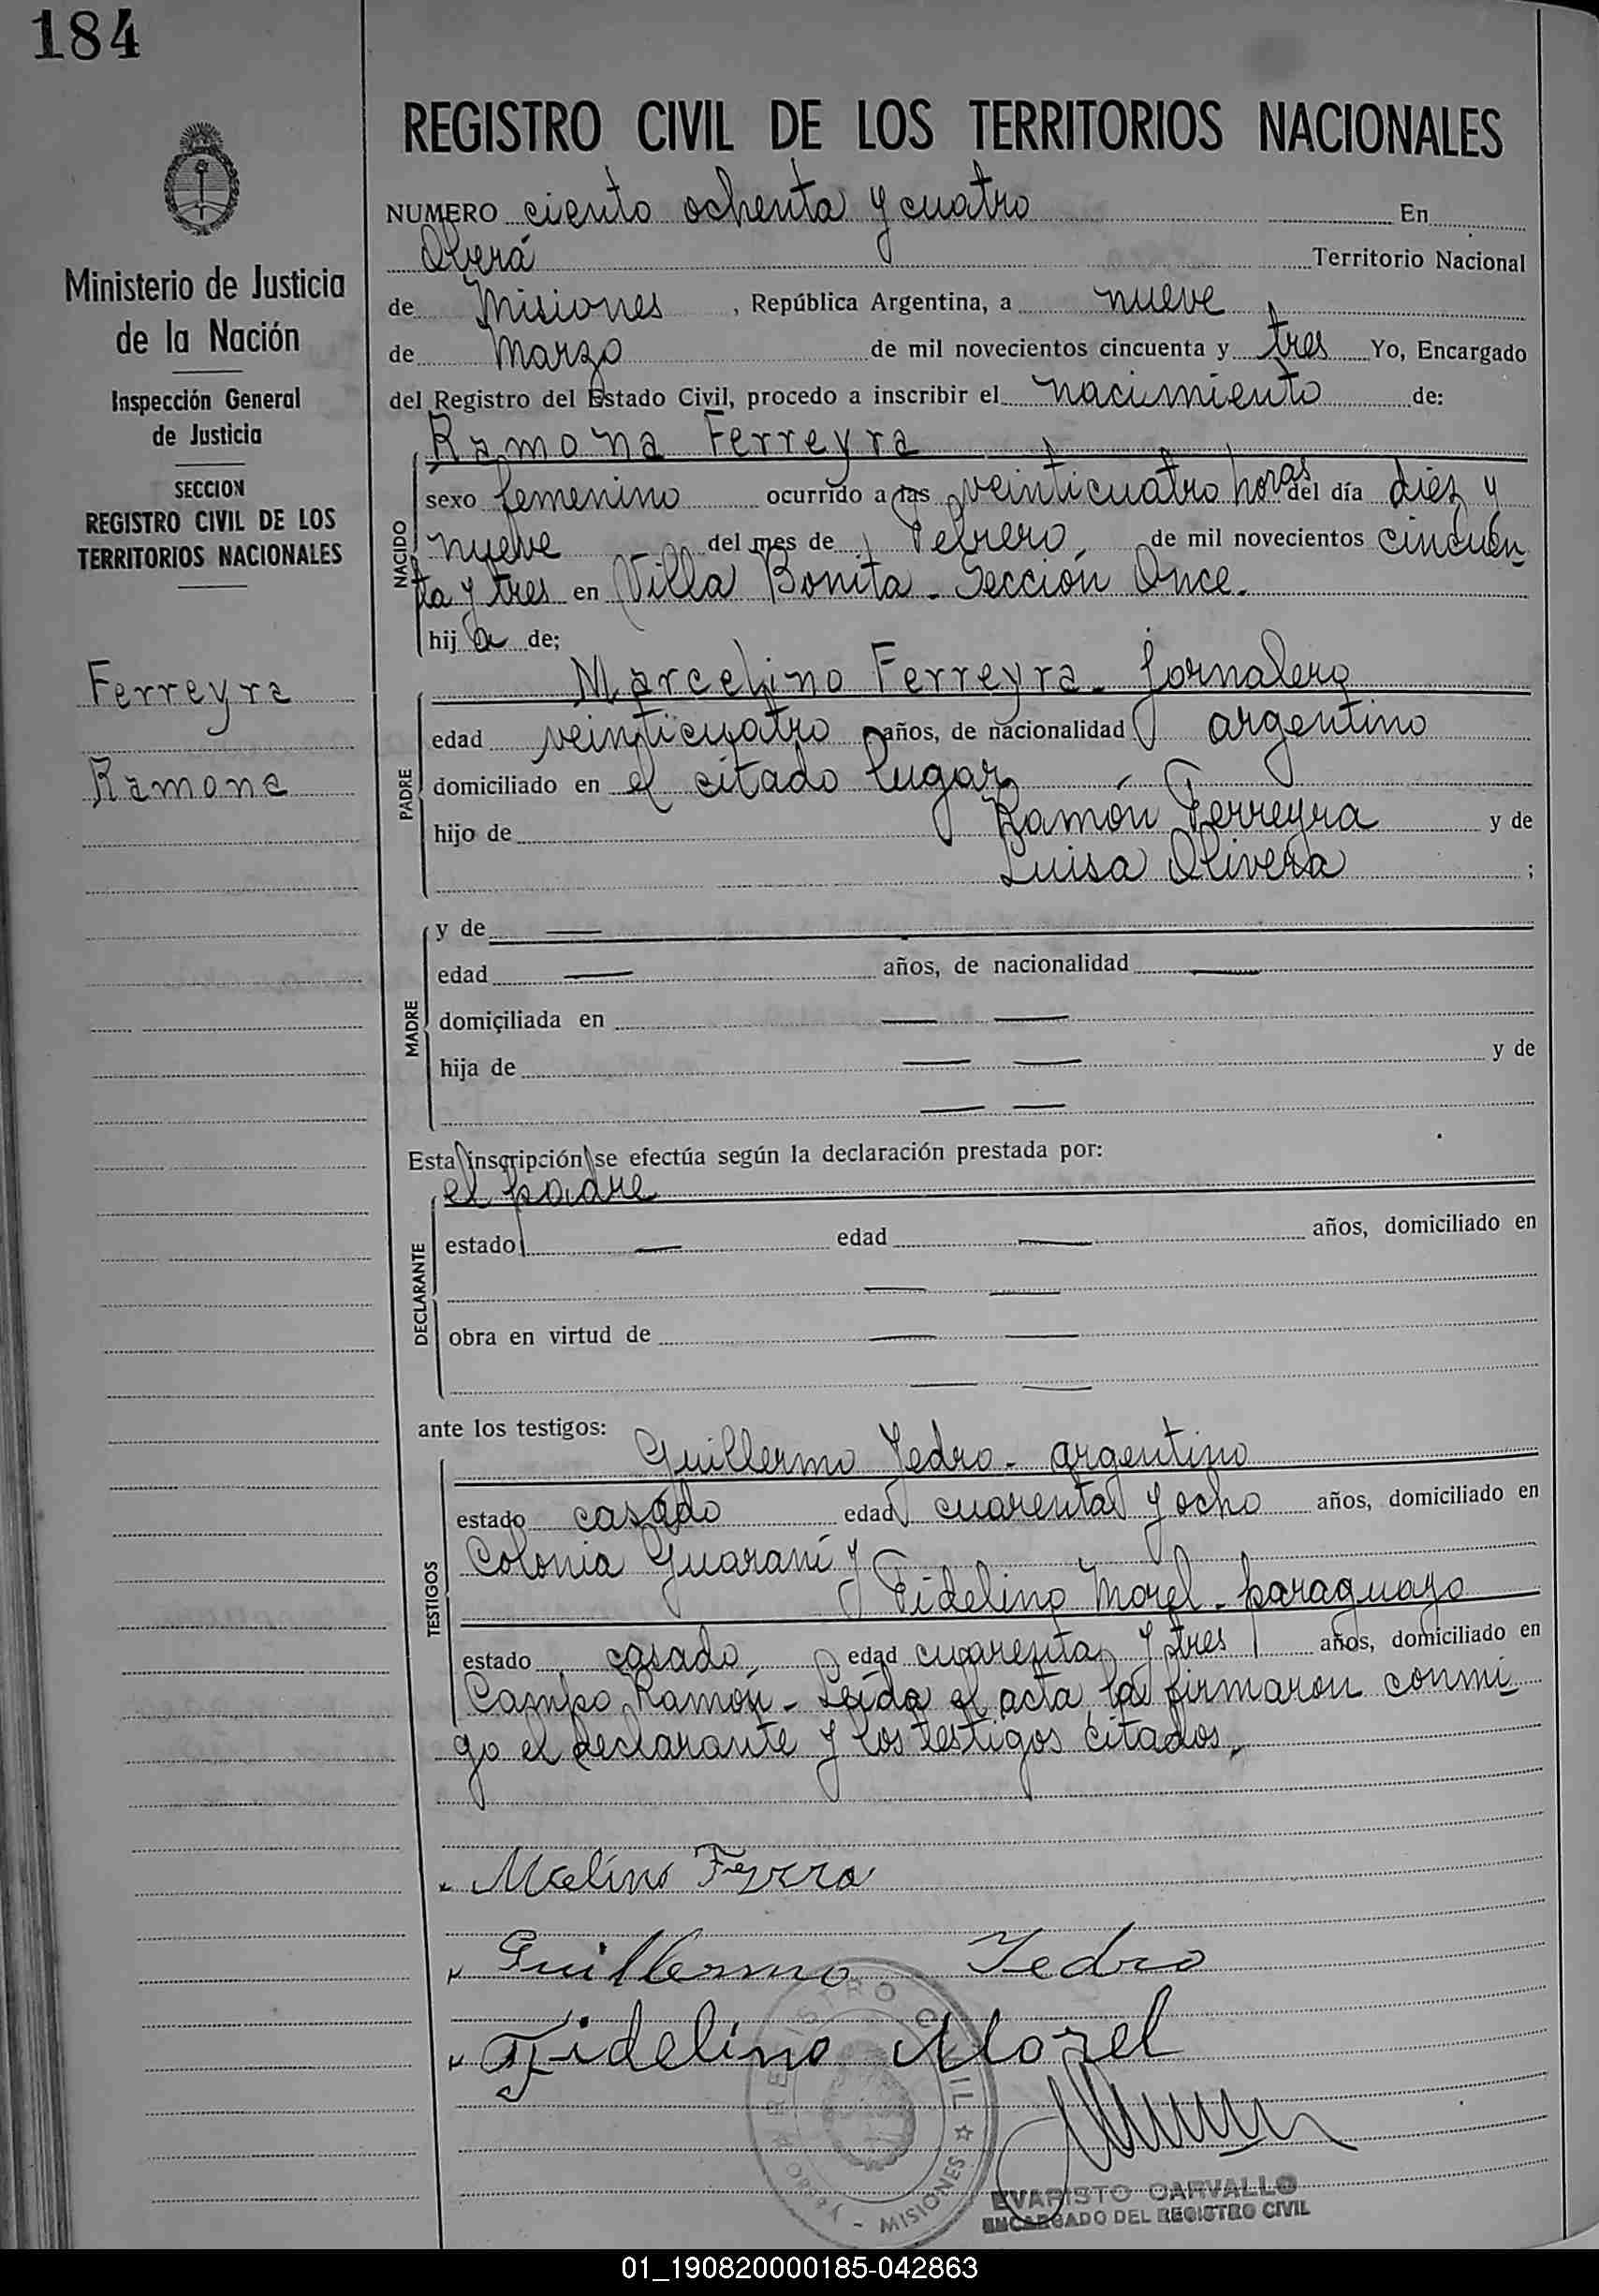 184
REGISTRO CIVIL DE LOS TERRITORIOS NACIONALES
Ministerio de Justicia
de la Nación
Inspección General
de Justicia
SECCION
REGISTRO CIVIL DE LOS
TERRITORIOS NACIONALES
Ferreyra
Ramona
NUMERO ciento ochenta y cuatro En
Oberá Territorio Nacional
de Misiones, República Argentina, a nueve
de Marzo de mil novecientos cincuenta y tres Yo, Encargado
del Registro del Estado Civil, procedo a inscribir el nacimiento de:
Ramona Ferreyra
NACIDO
sexo femenino ocurrido a las veinticuatro horas del día diez y
nueve del mes de Febrero, de mil novecientos cincuen
ta y tres en Villa Bonita - Seccion Once.
hija de;
Marcelino Ferreyra - Jornalero
PADRE
edad veinticuatro años, de nacionalidad argentino
domiciliado en el citado lugar
hijo de Ramón Ferreyra y de
Luisa Olivera ;
MADRE
y de —
edad — años, de nacionalidad —
domiciliada en — —
hija de — — y de
— —
Esta inscripción se efectúa según la declaración prestada por:
el padre
DECLARANTE
estado — edad — años, domiciliado en
— —
obra en virtud de — —
— —
ante los testigos:
Guillermo Tedro - argentino
TESTIGOS
estado casado edad cuarenta y ocho años, domiciliado en
Colonia Guaraní y
Fidelino Morel - paraguayo
estado casado, edad cuarenta y tres años, domiciliado en
Campo Ramón - Leída el acta la firmaron conmi
go el declarante y los testigos citados.
Guillermo Tedro
Fidelino Morel
REGISTRO CIVIL
OBERÁ - MISIONES
EVARISTO CARVALLO
ENCARGADO DEL REGISTRO CIVIL
01_190820000185-042863